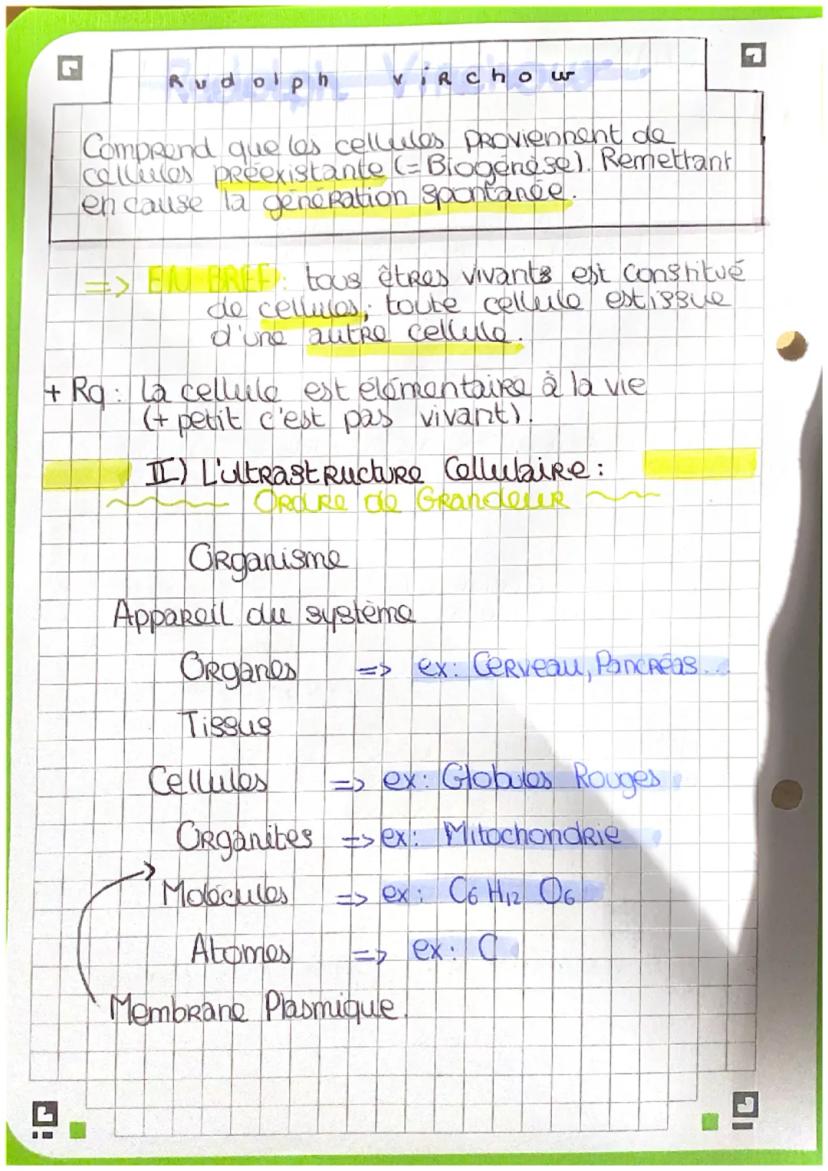 Rudolph Virchow
Comprend que les cellules proviennent de
cellules préexistante (=Biogénèse). Remettant
en cause la génération spontanée.
=> EN BREF: tous êtres vivants est constitué
de cellules; toute cellule est issue
d'une autre cellule.
+ Rq: La cellule est élémentaire à la vie
(+ petit c'est pas vivant).
II) L'ultrastructure Cellulaire:
Ordre de Grandeur
Organisme
Appareil du système
Organes => ex: Cerveau, Pancréas...
Tissus
Cellules => ex: Globules Rouges
Organites => ex: Mitochondrie
Molécules => ex: C6 H12 O6
Atomes => ex: C
Membrane Plasmique.